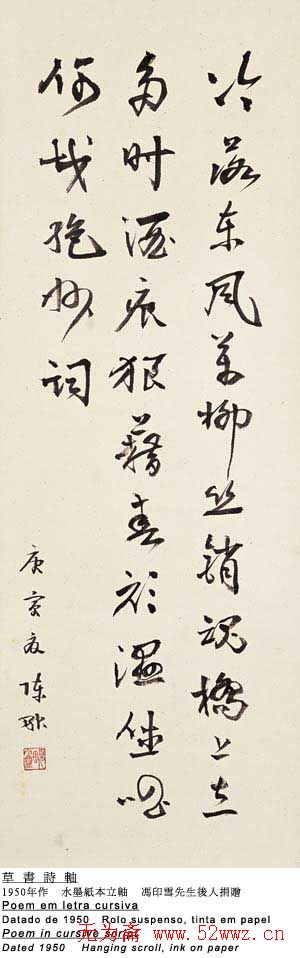 冷落東風萬柳絲銷魂橋上立
多時酒痕狼藉春衫濕低唱
何戡絕妙詞
庚寅夏 陳融
草書詩軸
1950年作 水墨紙本立軸 馮印雪先生後人捐贈
Poema em letra cursiva
Datado de 1950 Rolo suspenso, tinta em papel
Poem in cursive script
Dated 1950 Hanging scroll, ink on paper
无为斋 www.52wwz.cn